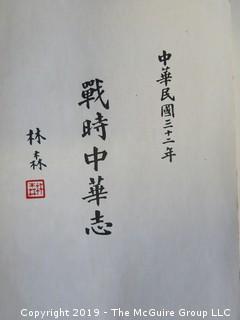 中華民國三十二年
戰時中華志
林森
Copyright 2019 - The McGuire Group LLC